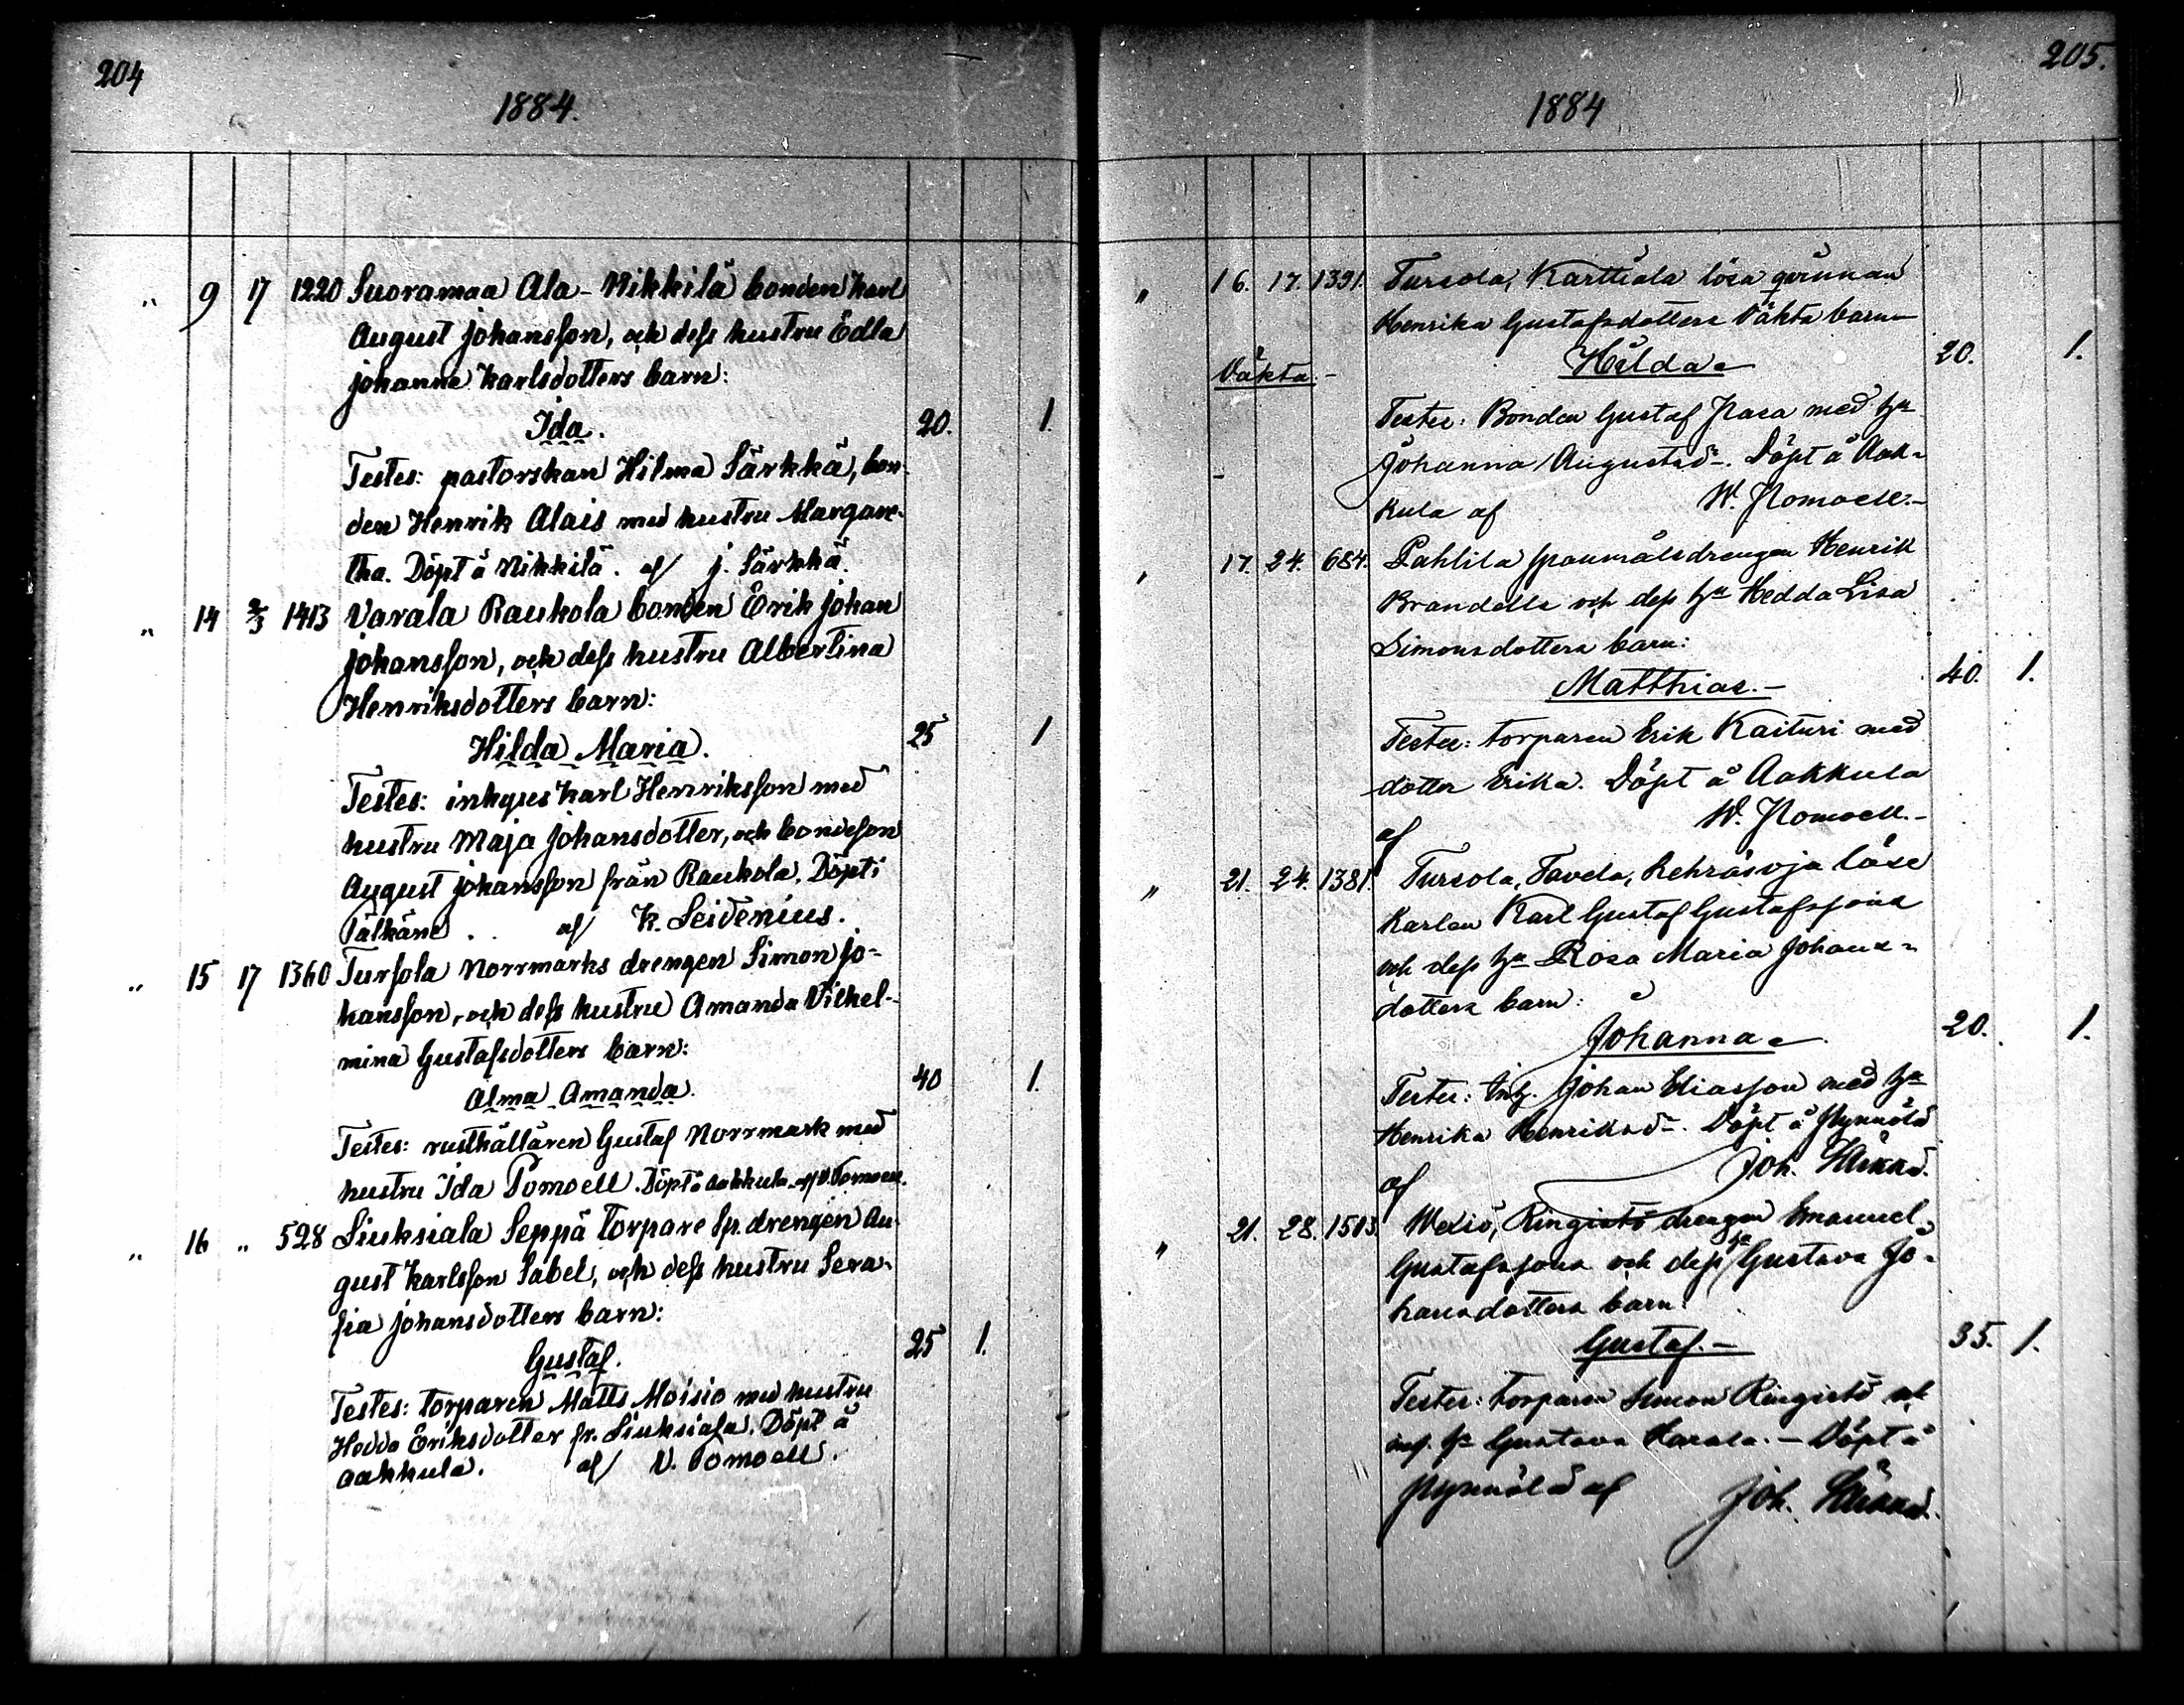 204
1884.
„ 9 17 1220 Suoramaa Ala-Nikkilä bonden Karl
August Johansson, och dess hustru Edla
Johanna Karlsdotters barn:
Ida. 20. 1.
Testes: pastorskan Hilma Särkkä, bon-
den Henrik Alais med hustru Margare-
tha. Döpt å Nikkilä. af J. Särkkä.
„ 14 2/3 1413 Varala Raukola bonden Erik Johan
Johansson, och dess hustru Albertina
Henriksdotters barn:
Hilda Maria. 25 1
Testes: inhyses Karl Henriksson med
hustru Maja Johansdotter, och bondeson
August Johansson från Raukola. Döpt i
Pälkäne . . af K. Seidenius.
„ 15 17 1360 Tursola Norrmarks drengen Simon Jo-
hansson, och dess hustru Amanda Vilhel-
mina Gustafsdotters barn:
Alma Amanda. 40 1.
Testes: rusthållaren Gustaf Norrmark med
hustru Ida Pomoell. Döpt å Aakkula af V. Pomoell.
„ 16 „ 528 Liuksiala Seppä torpare Sp. drengen Au-
gust Karlsson Sabel, och dess hustru Sera-
fia Johansdotters barn:
Gustaf. 25 1.
Testes: torparen Matts Moisio med hustru
Hedda Eriksdotter fr. Liuksiala. Döpt å
Aakkula. af V. Pomoell.
205.
1884
„ 16. 17. 1391. Tursola, Karttiala lösa qvinnan
Henrika Gustafsdotters oäkta barn
Oäkta.- Hilda 20. 1.
Testes: Bonden Gustaf Paca med hu
Johanna Augustsdr. Döpt å Aak-
kula af W. Pomoell.-
„ 17. 24. 684. Pahlila spanmålsdrengen Henrik
Brandells och dess hu Hedda Lisa
Simonsdotters barn:
Matthias.- 40. 1.
Testes: torparen Erik Kaituri med
dotter Erika. Döpt å Aakkula
af W. Pomoell.-
„ 21. 24. 1381. Tursola, Tavela, Rehräsoja löse
karlen Karl Gustaf Gustafssons
och dess hu Rosa Maria Johans-
dotters barn:
Johanna 20. 1.
Testes: Inh. Johan Eliasson med hu
Henrika Henriksdr. Döpt å Pynnölä
af Joh. Särkkä.
„ 21. 28. 1513. Wexiö, Ringistö drengen Emanuel
Gustafssons och dess hu Gustava Jo-
hansdotters barn:
Gustaf.- 35. 1.
Testes: torparen Simon Ringistö och
hu Gustava Harala.- Döpt å
Pynnölä af Joh. Särkkä.